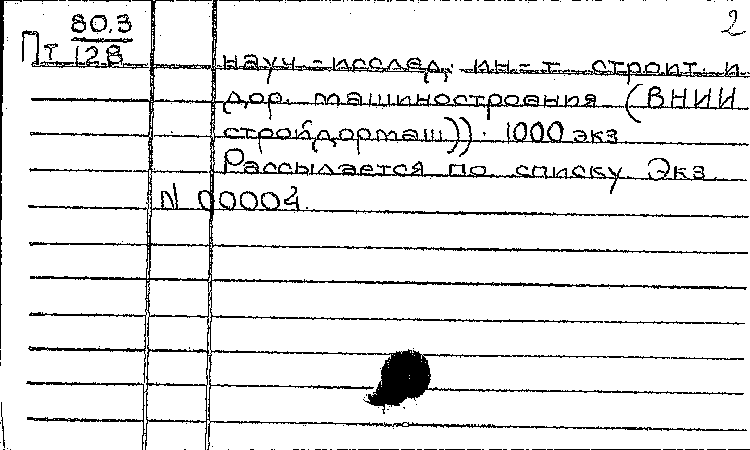 2
80.3
Пт 128
науч.-исслед. ин-т строит. и
дор. машиностроения (ВНИИ
стройдормаш)). 1000 экз
Рассылается по списку Экз.
N 00004.